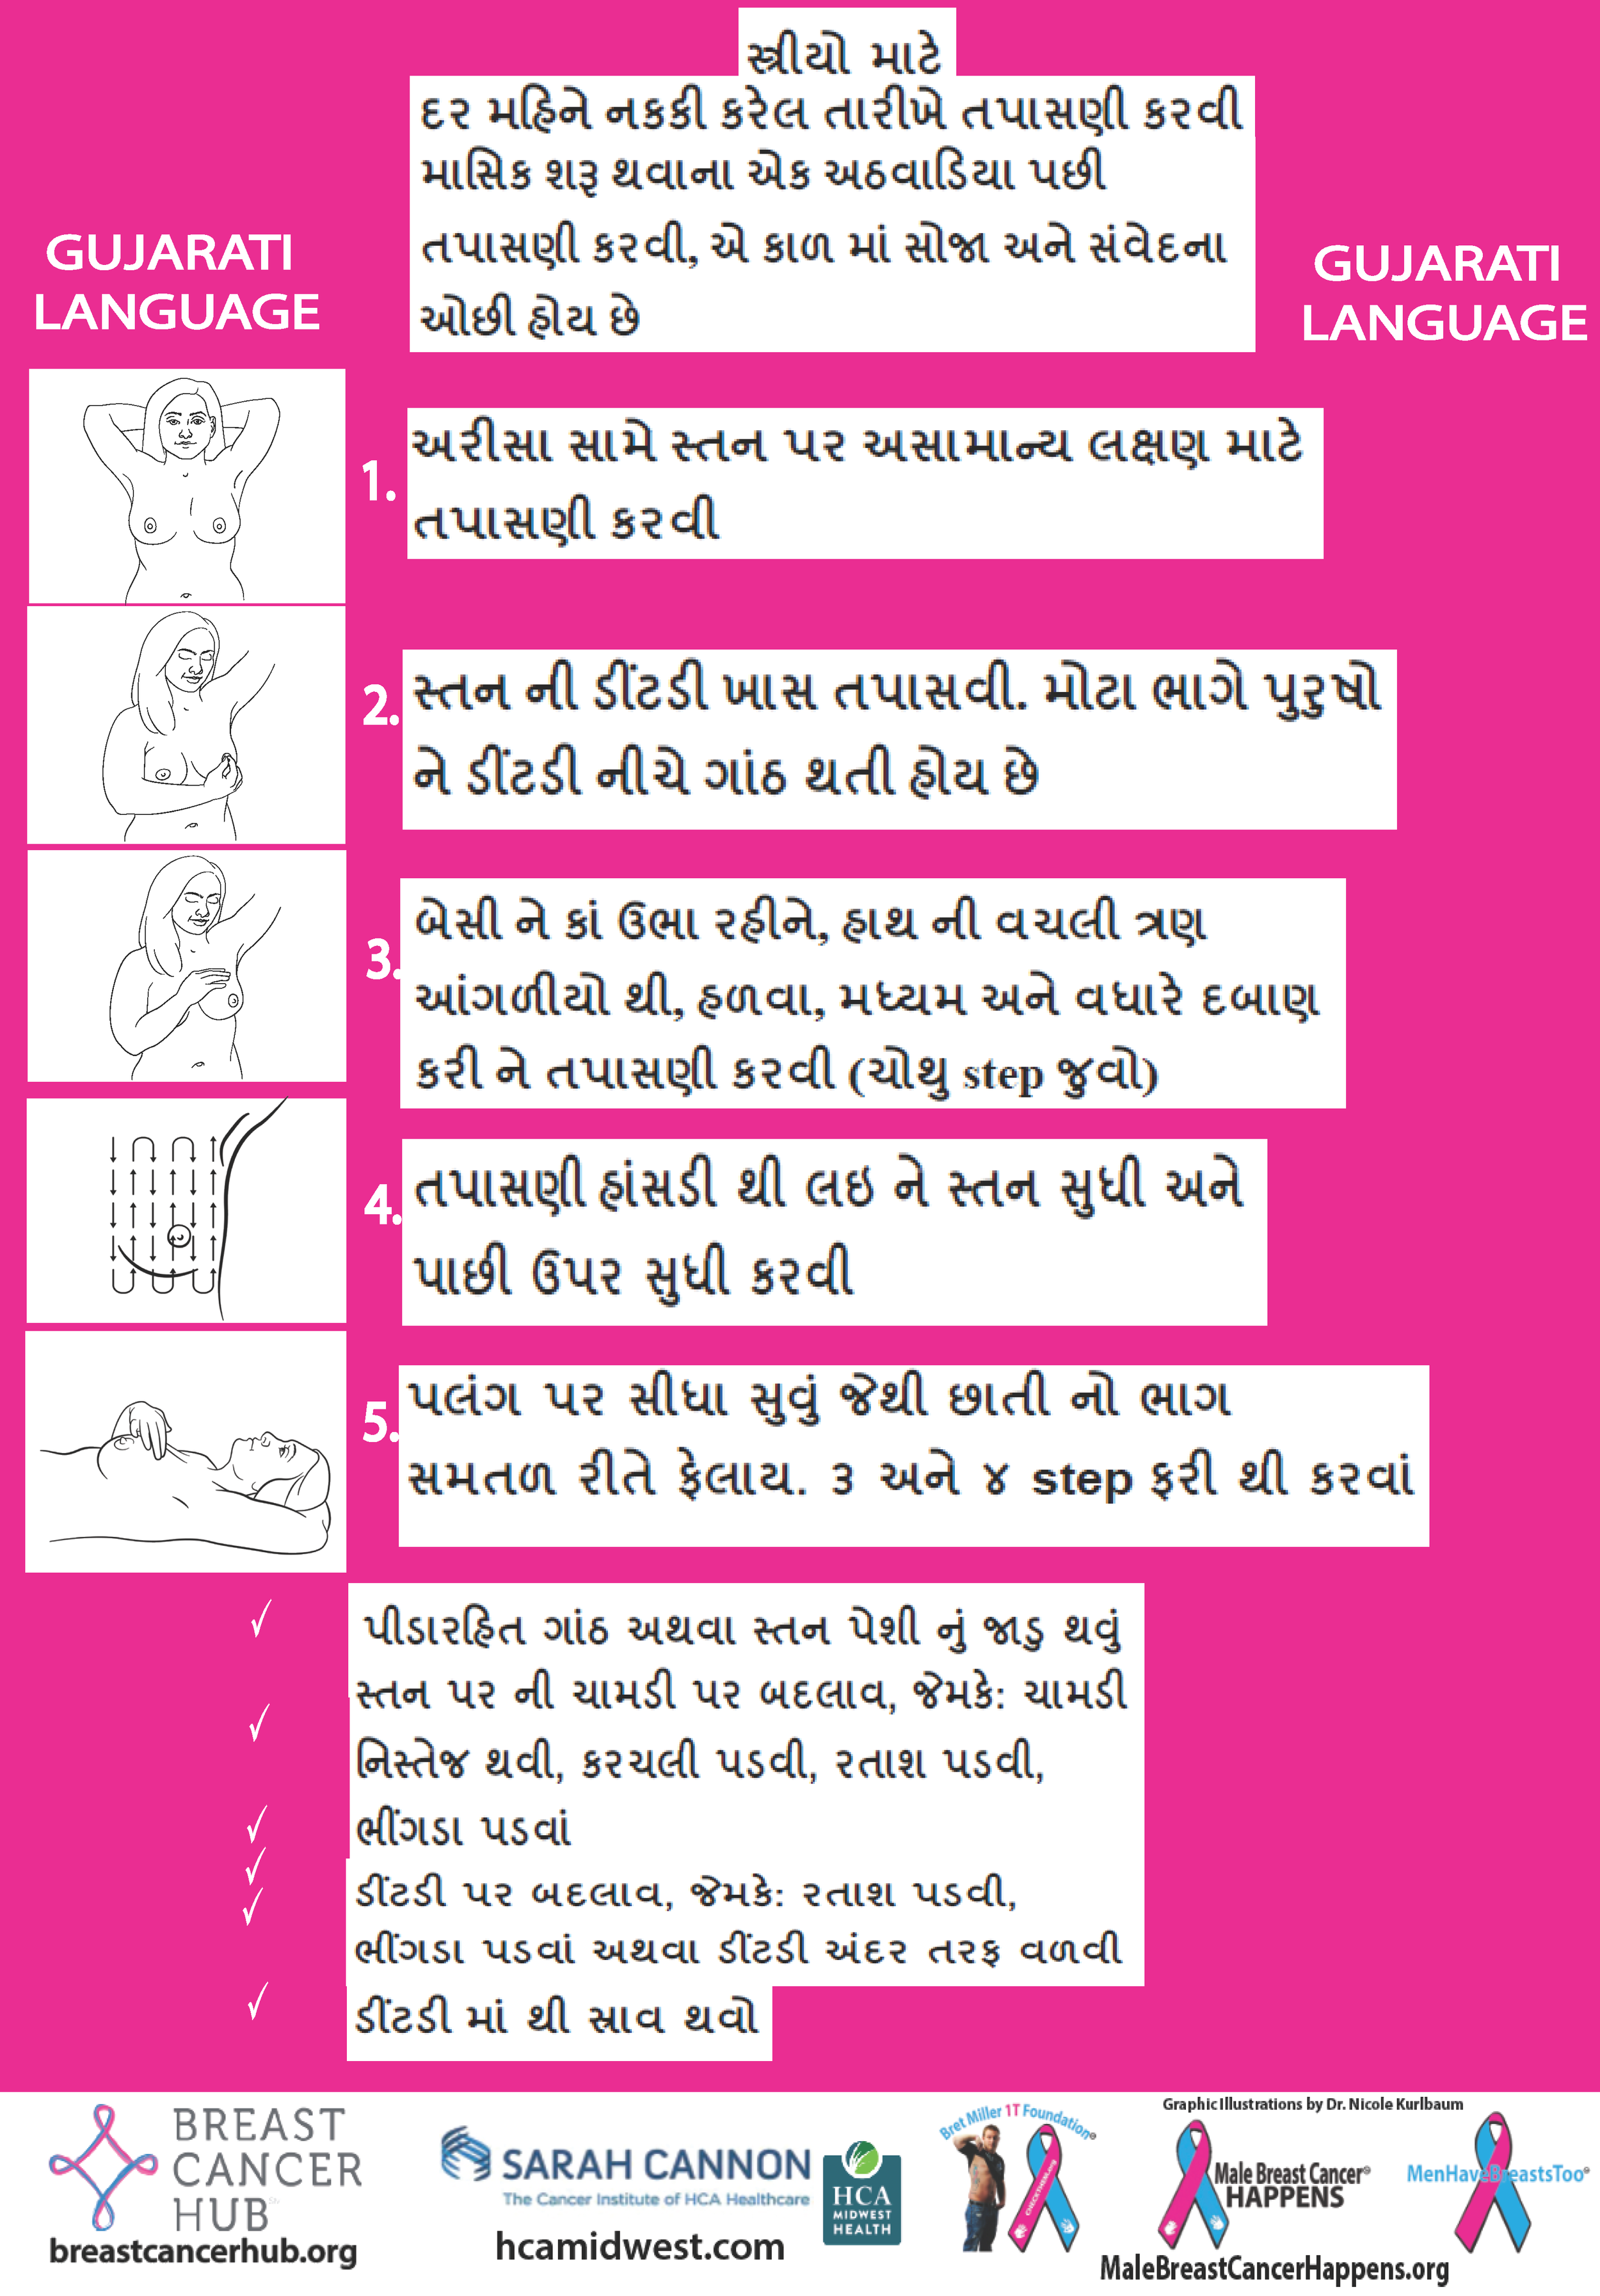 સ્ત્રીયો માટે
દર મહિને નકકી કરેલ તારીખે તપાસણી કરવી
માસિક શરૂ થવાના એક અઠવાડિયા પછી
તપાસણી કરવી, એ કાળ માં સોજા અને સંવેદના
ઓછી હોય છે
GUJARATI
LANGUAGE
GUJARATI
LANGUAGE
1. અરીસા સામે સ્તન પર અસામાન્ય લક્ષણ માટે
તપાસણી કરવી
2. સ્તન ની ડીંટડી ખાસ તપાસવી. મોટા ભાગે પુરુષો
ને ડીંટડી નીચે ગાંઠ થતી હોય છે
3. બેસી ને કાં ઉભા રહીને, હાથ ની વચલી ત્રણ
આંગળીયો થી, હળવા, મધ્યમ અને વધારે દબાણ
કરી ને તપાસણી કરવી (ચોથુ step જુવો)
4. તપાસણી હાંસડી થી લઇ ને સ્તન સુધી અને
પાછી ઉપર સુધી કરવી
5. પલંગ પર સીધા સુવું જેથી છાતી નો ભાગ
સમતળ રીતે ફેલાય. ૩ અને ૪ step ફરી થી કરવાં
✓ પીડારહિત ગાંઠ અથવા સ્તન પેશી નું જાડુ થવું
સ્તન પર ની ચામડી પર બદલાવ, જેમકે: ચામડી
✓ નિસ્તેજ થવી, કરચલી પડવી, રતાશ પડવી,
✓ ભીંગડા પડવાં
✓ ડીંટડી પર બદલાવ, જેમકે: રતાશ પડવી,
✓ ભીંગડા પડવાં અથવા ડીંટડી અંદર તરફ વળવી
✓ ડીંટડી માં થી સ્રાવ થવો
BREAST
CANCER
HUB
breastcancerhub.org
SARAH CANNON
The Cancer Institute of HCA Healthcare
hcamidwest.com
HCA
MIDWEST
HEALTH
Bret Miller 1T Foundation
CHECKTHEM.org
Graphic Illustrations by Dr. Nicole Kurlbaum
Male Breast Cancer®
HAPPENS
MenHaveBreastsToo®
MaleBreastCancerHappens.org